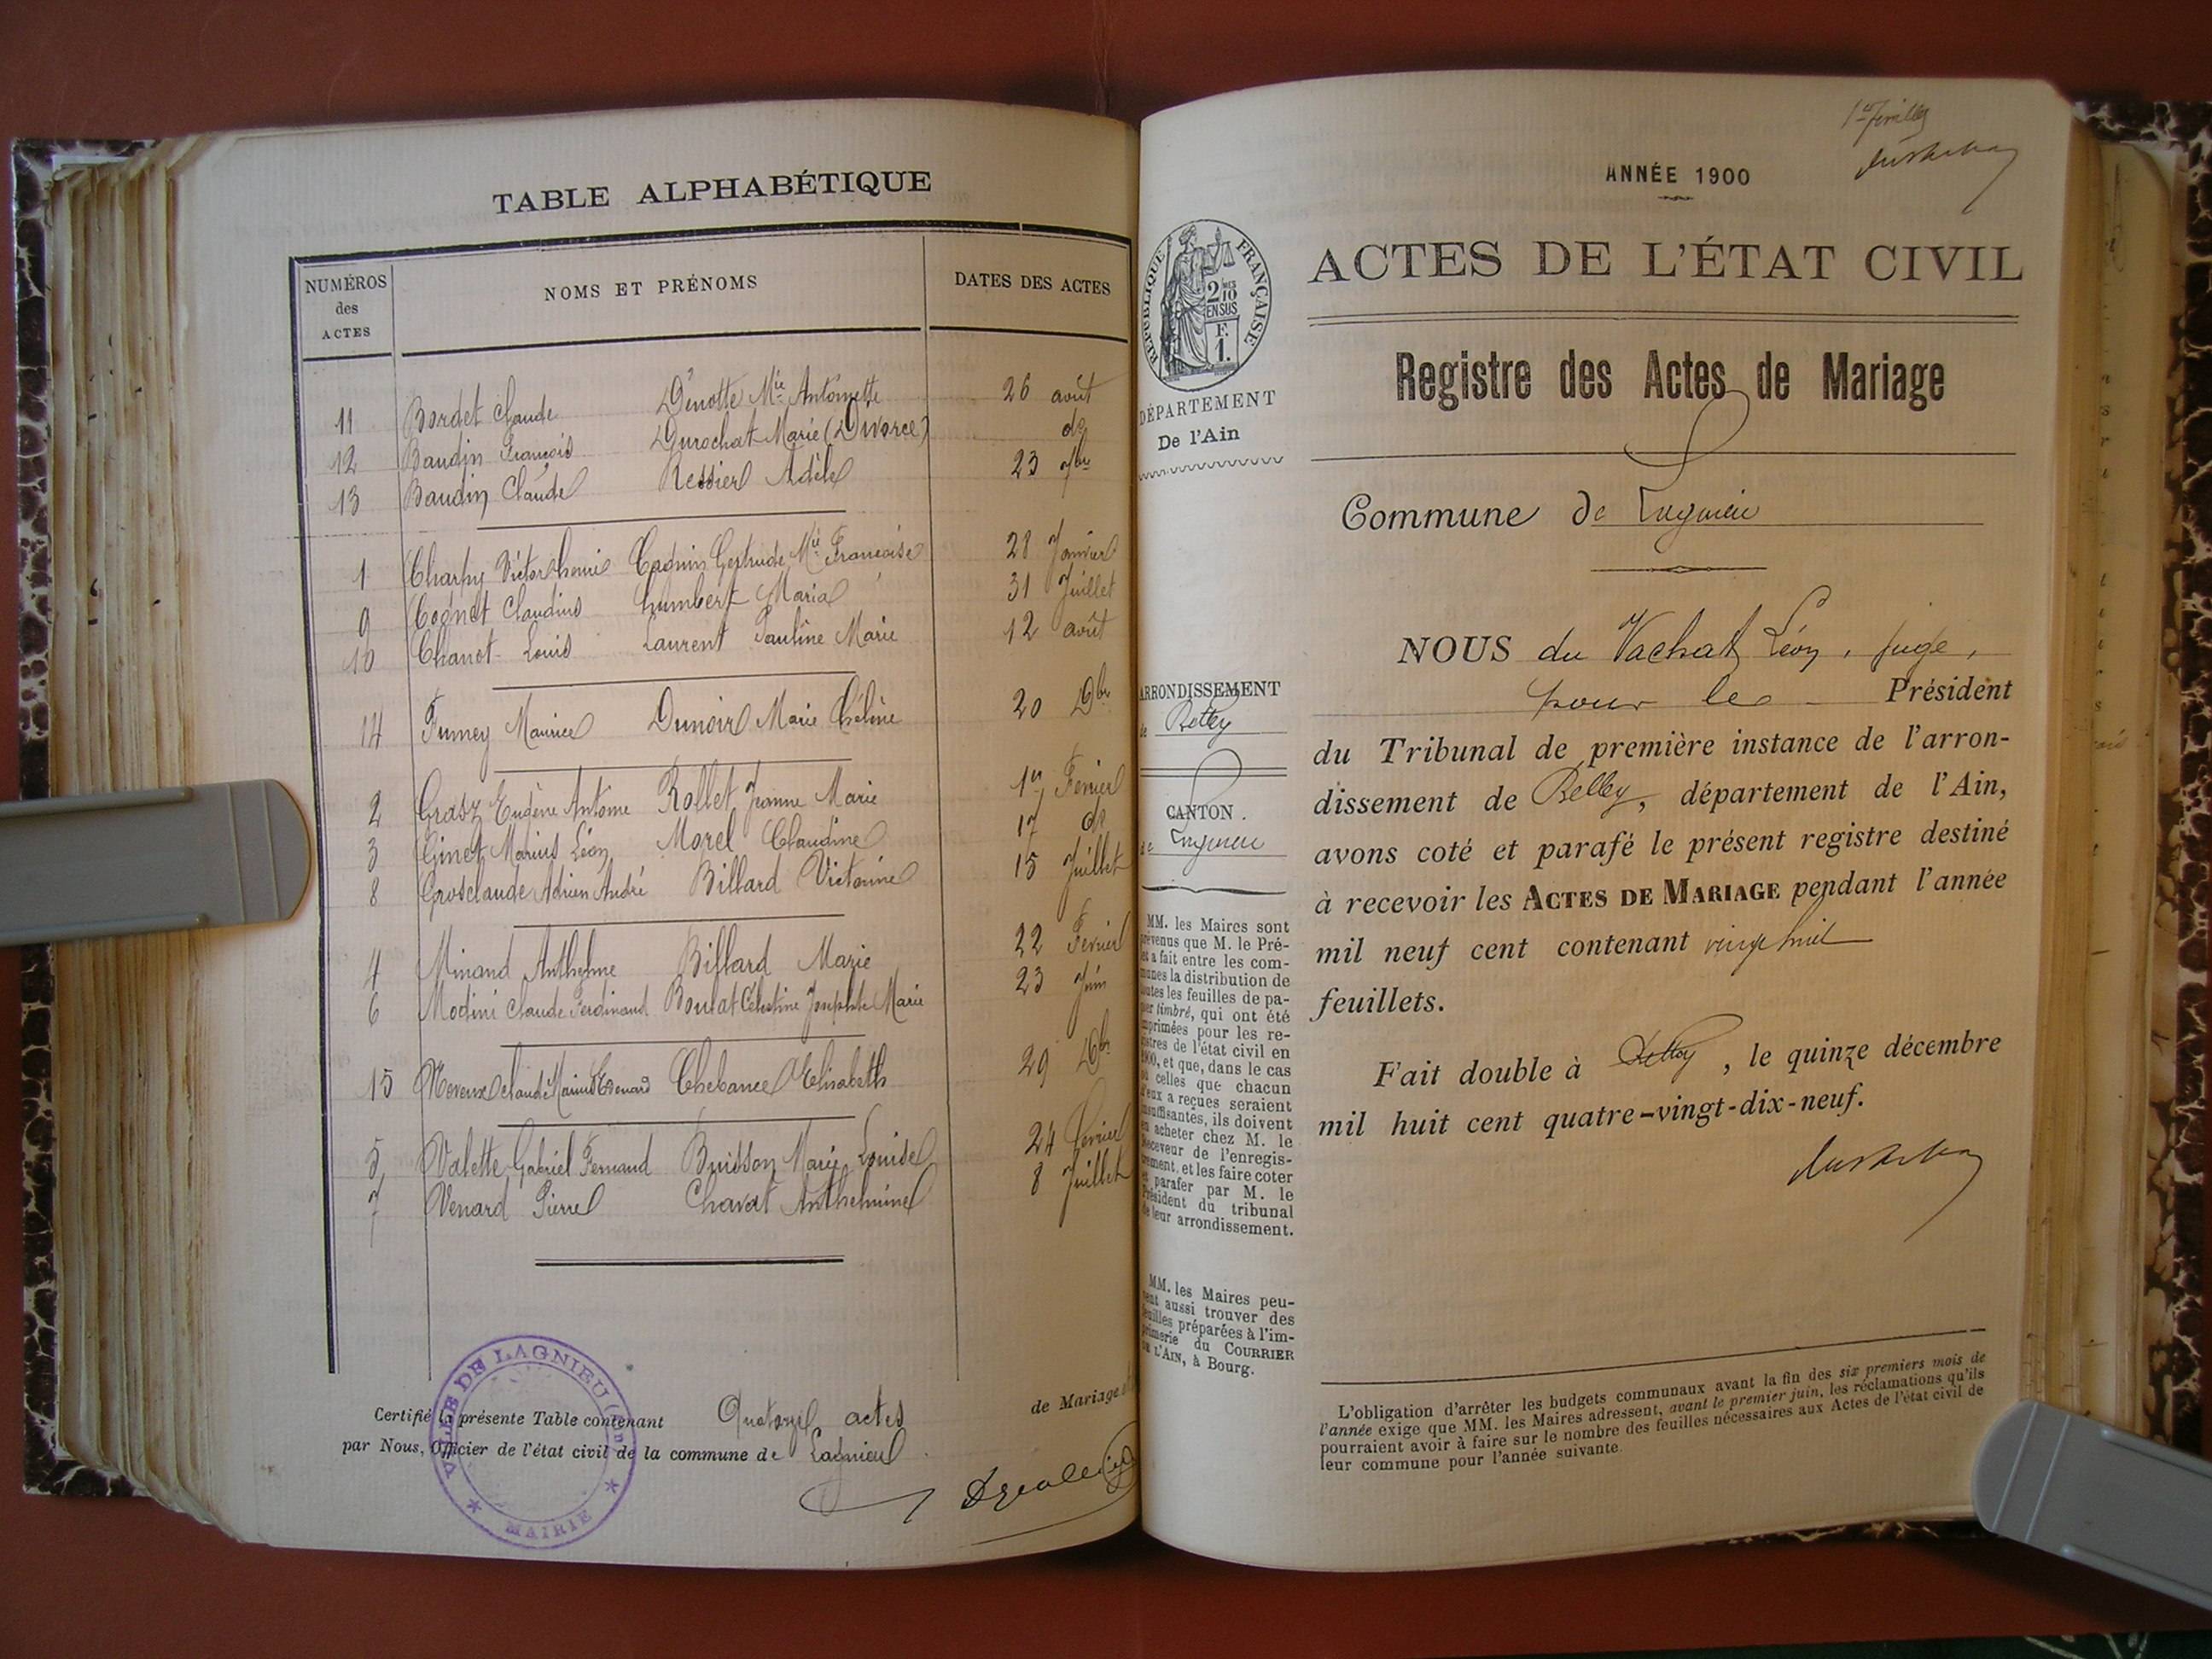 TABLE ALPHABÉTIQUE
NUMÉROS des ACTES
NOMS ET PRÉNOMS
DATES DES ACTES
11 Bordet Claude Denotte Mie Antoinette 26 août
12 Baudin François Durochat Marie (Divorce) do
13 Baudin Claude Ressier Adèle 23 7bre
1 Charpy Victor henri Gertrude Mie Françoise 28 Janvier
9 Cognet Claudius humbert Maria 31 Juillet
10 Chanet Louis Laurent Pauline Marie 12 août
14 Fumey Maurice Dunoire Marie hélène 20 Dbre
2 Grasz Eugène Antoine Rollet Jeanne Marie 1er Fevrier
3 Ginet Marius Léon Morel Claudine 17 do
8 Grosclaude Adrien André Billard Victorine 15 Juillet
4 Minand Anthelme Billard Marie 22 Fevrier
6 Modini Claude Ferdinand Boulat Célestine Josephte Marie 23 Juin
15 Claude Chebance Elisabeth 29 Dbre
5 Valette Gabriel Fernand Buisson Marie Louise 24 Fevrier
7 Venard Pierre Chavat Anthelmine 8 Juillet
VILLE DE LAGNIEU (Ain)
MAIRIE
Certifié la présente Table contenant Quatorze actes de Mariage
par Nous, Officier de l'état civil de la commune de Lagnieu
1er feuillet
ANNÉE 1900
RÉPUBLIQUE FRANÇAISE
2/10 MES
EN SUS
F.
1.
DÉPARTEMENT
De l'Ain
ARRONDISSEMENT
de Belley
CANTON
de Lagnieu
MM. les Maires sont
prévenus que M. le Pré-
et a fait entre les com-
munes la distribution de
toutes les feuilles de pa-
pier timbré, qui ont été
imprimées pour les re-
gistres de l'état civil en
1900, et que, dans le cas
où celles que chacun
d'eux a reçues seraient
insuffisantes, ils doivent
en acheter chez M. le
Receveur de l'enregis-
trement, et les faire coter
et parafer par M. le
Président du tribunal
de leur arrondissement.
MM. les Maires peu-
vent aussi trouver des
feuilles préparées à l'im-
primerie du COURRIER
DE L'AIN, à Bourg.
ACTES DE L'ÉTAT CIVIL
Registre des Actes de Mariage
Commune de Lagnieu
NOUS du Vachat Léon, juge,
pour le Président
du Tribunal de première instance de l'arron-
dissement de Belley, département de l'Ain,
avons coté et parafé le présent registre destiné
à recevoir les ACTES DE MARIAGE pendant l'année
mil neuf cent contenant vingt huit
feuillets.
Fait double à Belley, le quinze décembre
mil huit cent quatre-vingt-dix-neuf.
L'obligation d'arrêter les budgets communaux avant la fin des six premiers mois de
l'année exige que MM. les Maires adressent, avant le premier juin, les réclamations qu'ils
pourraient avoir à faire sur le nombre des feuilles nécessaires aux Actes de l'état civil de
leur commune pour l'année suivante.